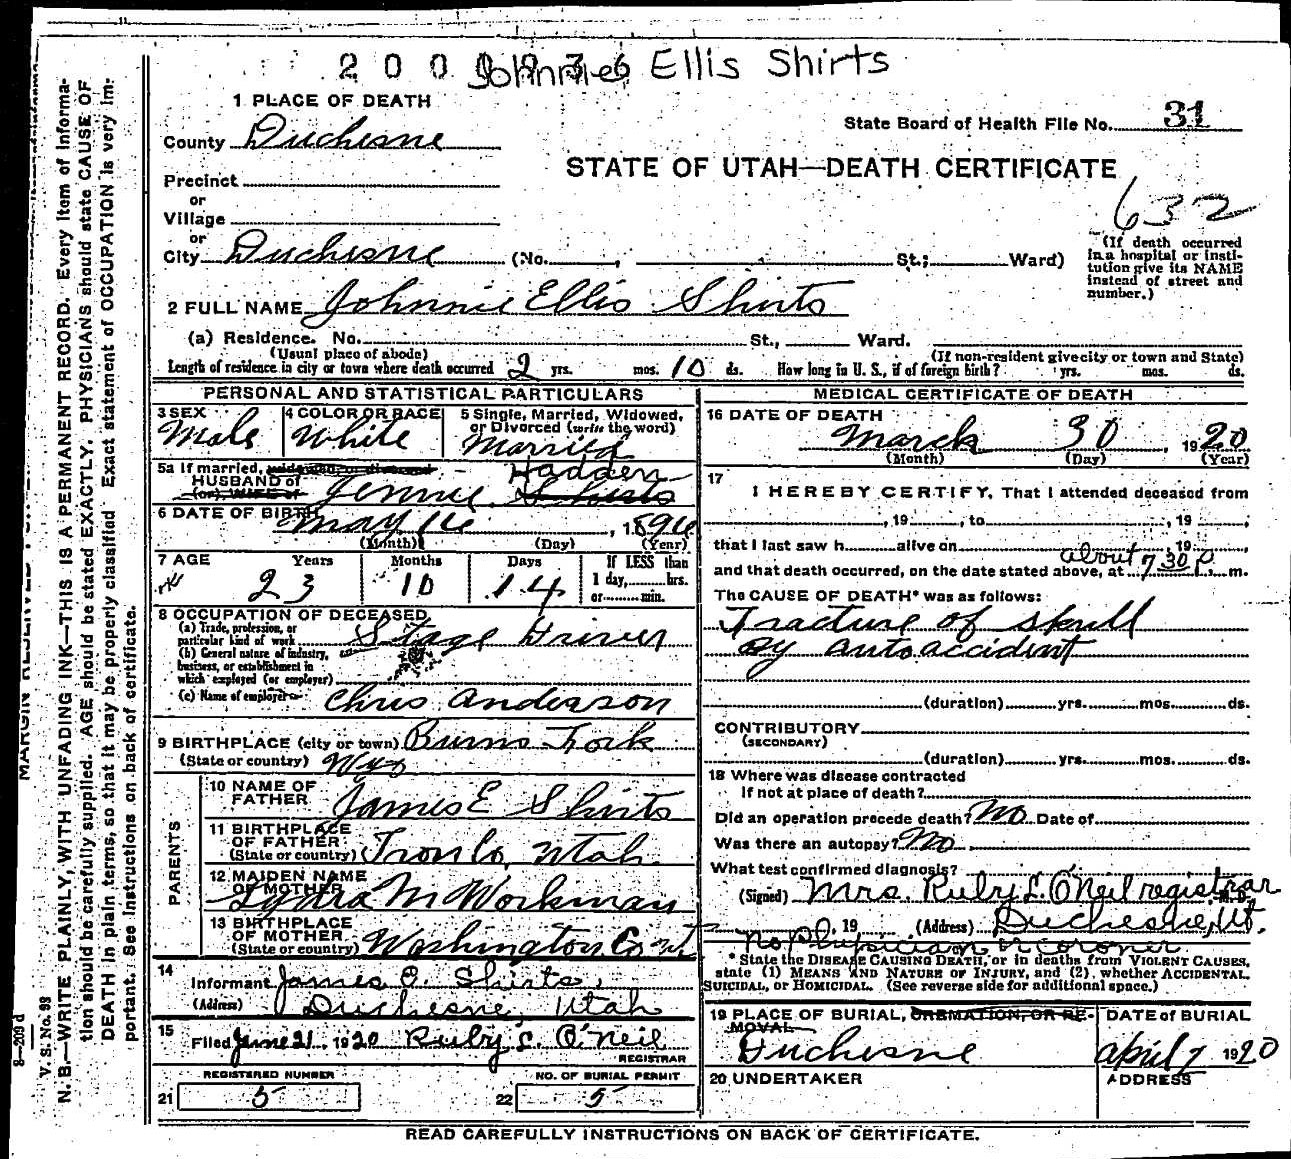 2 0 0 0 9 3 6 Johnnie Ellis Shirts
1 PLACE OF DEATH
State Board of Health File No. 31
County Duchesne
STATE OF UTAH—DEATH CERTIFICATE
Precinct
or
Village
632
or
City Duchesne (No. , St.; Ward)
(If death occurred in a hospital or institution give its NAME instead of street and number.)
2 FULL NAME Johnnie Ellis Shirts
(a) Residence. No. St., Ward.
(Usual place of abode) (If non-resident give city or town and State)
Length of residence in city or town where death occurred 2 yrs. mos. 10 ds. How long in U. S., if of foreign birth? yrs. mos. ds.
PERSONAL AND STATISTICAL PARTICULARS
3 SEX Male
4 COLOR OR RACE White
5 Single, Married, Widowed, or Divorced (write the word)
Married
5a If married, widowed, or divorced
HUSBAND of
(or) WIFE of Jennie Shirts Hadden
6 DATE OF BIRTH May 16, 1896
(Month) (Day) (Year)
7 AGE Years Months Days If LESS than
1 day, hrs.
or min.
23 10 14
8 OCCUPATION OF DECEASED
(a) Trade, profession, or particular kind of work Stage Driver
(b) General nature of industry, business, or establishment in which employed (or employer)
(c) Name of employer Chris Anderson
9 BIRTHPLACE (city or town) Burns Fork
(State or country) Wyo
PARENTS
10 NAME OF FATHER James E Shirts
11 BIRTHPLACE OF FATHER
(State or country) Iron Co, Utah
12 MAIDEN NAME OF MOTHER
Lydia M Workman
13 BIRTHPLACE OF MOTHER
(State or country) Washington Co Ut
14
Informant James E. Shirts,
(Address) Duchesne, Utah
15
Filed June 21, 1920 Ruby L. O'Neil
REGISTRAR
REGISTERED NUMBER NO. OF BURIAL PERMIT
21 5 22 5
MEDICAL CERTIFICATE OF DEATH
16 DATE OF DEATH
March 30 1920
(Month) (Day) (Year)
17
I HEREBY CERTIFY, That I attended deceased from
, 19 , to , 19 ,
that I last saw h alive on , 19 ,
and that death occurred, on the date stated above, at about 7 30 p. m.
The CAUSE OF DEATH* was as follows:
Fracture of skull
By auto accident
(duration) yrs. mos. ds.
CONTRIBUTORY
(SECONDARY)
(duration) yrs. mos. ds.
18 Where was disease contracted
If not at place of death?
Did an operation precede death? No Date of
Was there an autopsy? No.
What test confirmed diagnosis?
(Signed) Mrs. Ruby L. O'Neil registrar M. D.
, 19 (Address) Duchesne, Ut.
No Physician or Coroner
* State the DISEASE CAUSING DEATH, or in deaths from VIOLENT CAUSES, state (1) MEANS AND NATURE OF INJURY, and (2), whether ACCIDENTAL, SUICIDAL, or HOMICIDAL. (See reverse side for additional space.)
19 PLACE OF BURIAL, CREMATION, OR REMOVAL
Duchesne
DATE OF BURIAL
April 7 1920
20 UNDERTAKER
ADDRESS
READ CAREFULLY INSTRUCTIONS ON BACK OF CERTIFICATE.
8—209 d
V. S. No. 98
N. B.—WRITE PLAINLY, WITH UNFADING INK—THIS IS A PERMANENT RECORD. Every item of Information should be carefully supplied. AGE should be stated EXACTLY. PHYSICIANS should state CAUSE OF DEATH in plain terms, so that it may be properly classified. Exact statement of OCCUPATION is very important. See instructions on back of certificate.